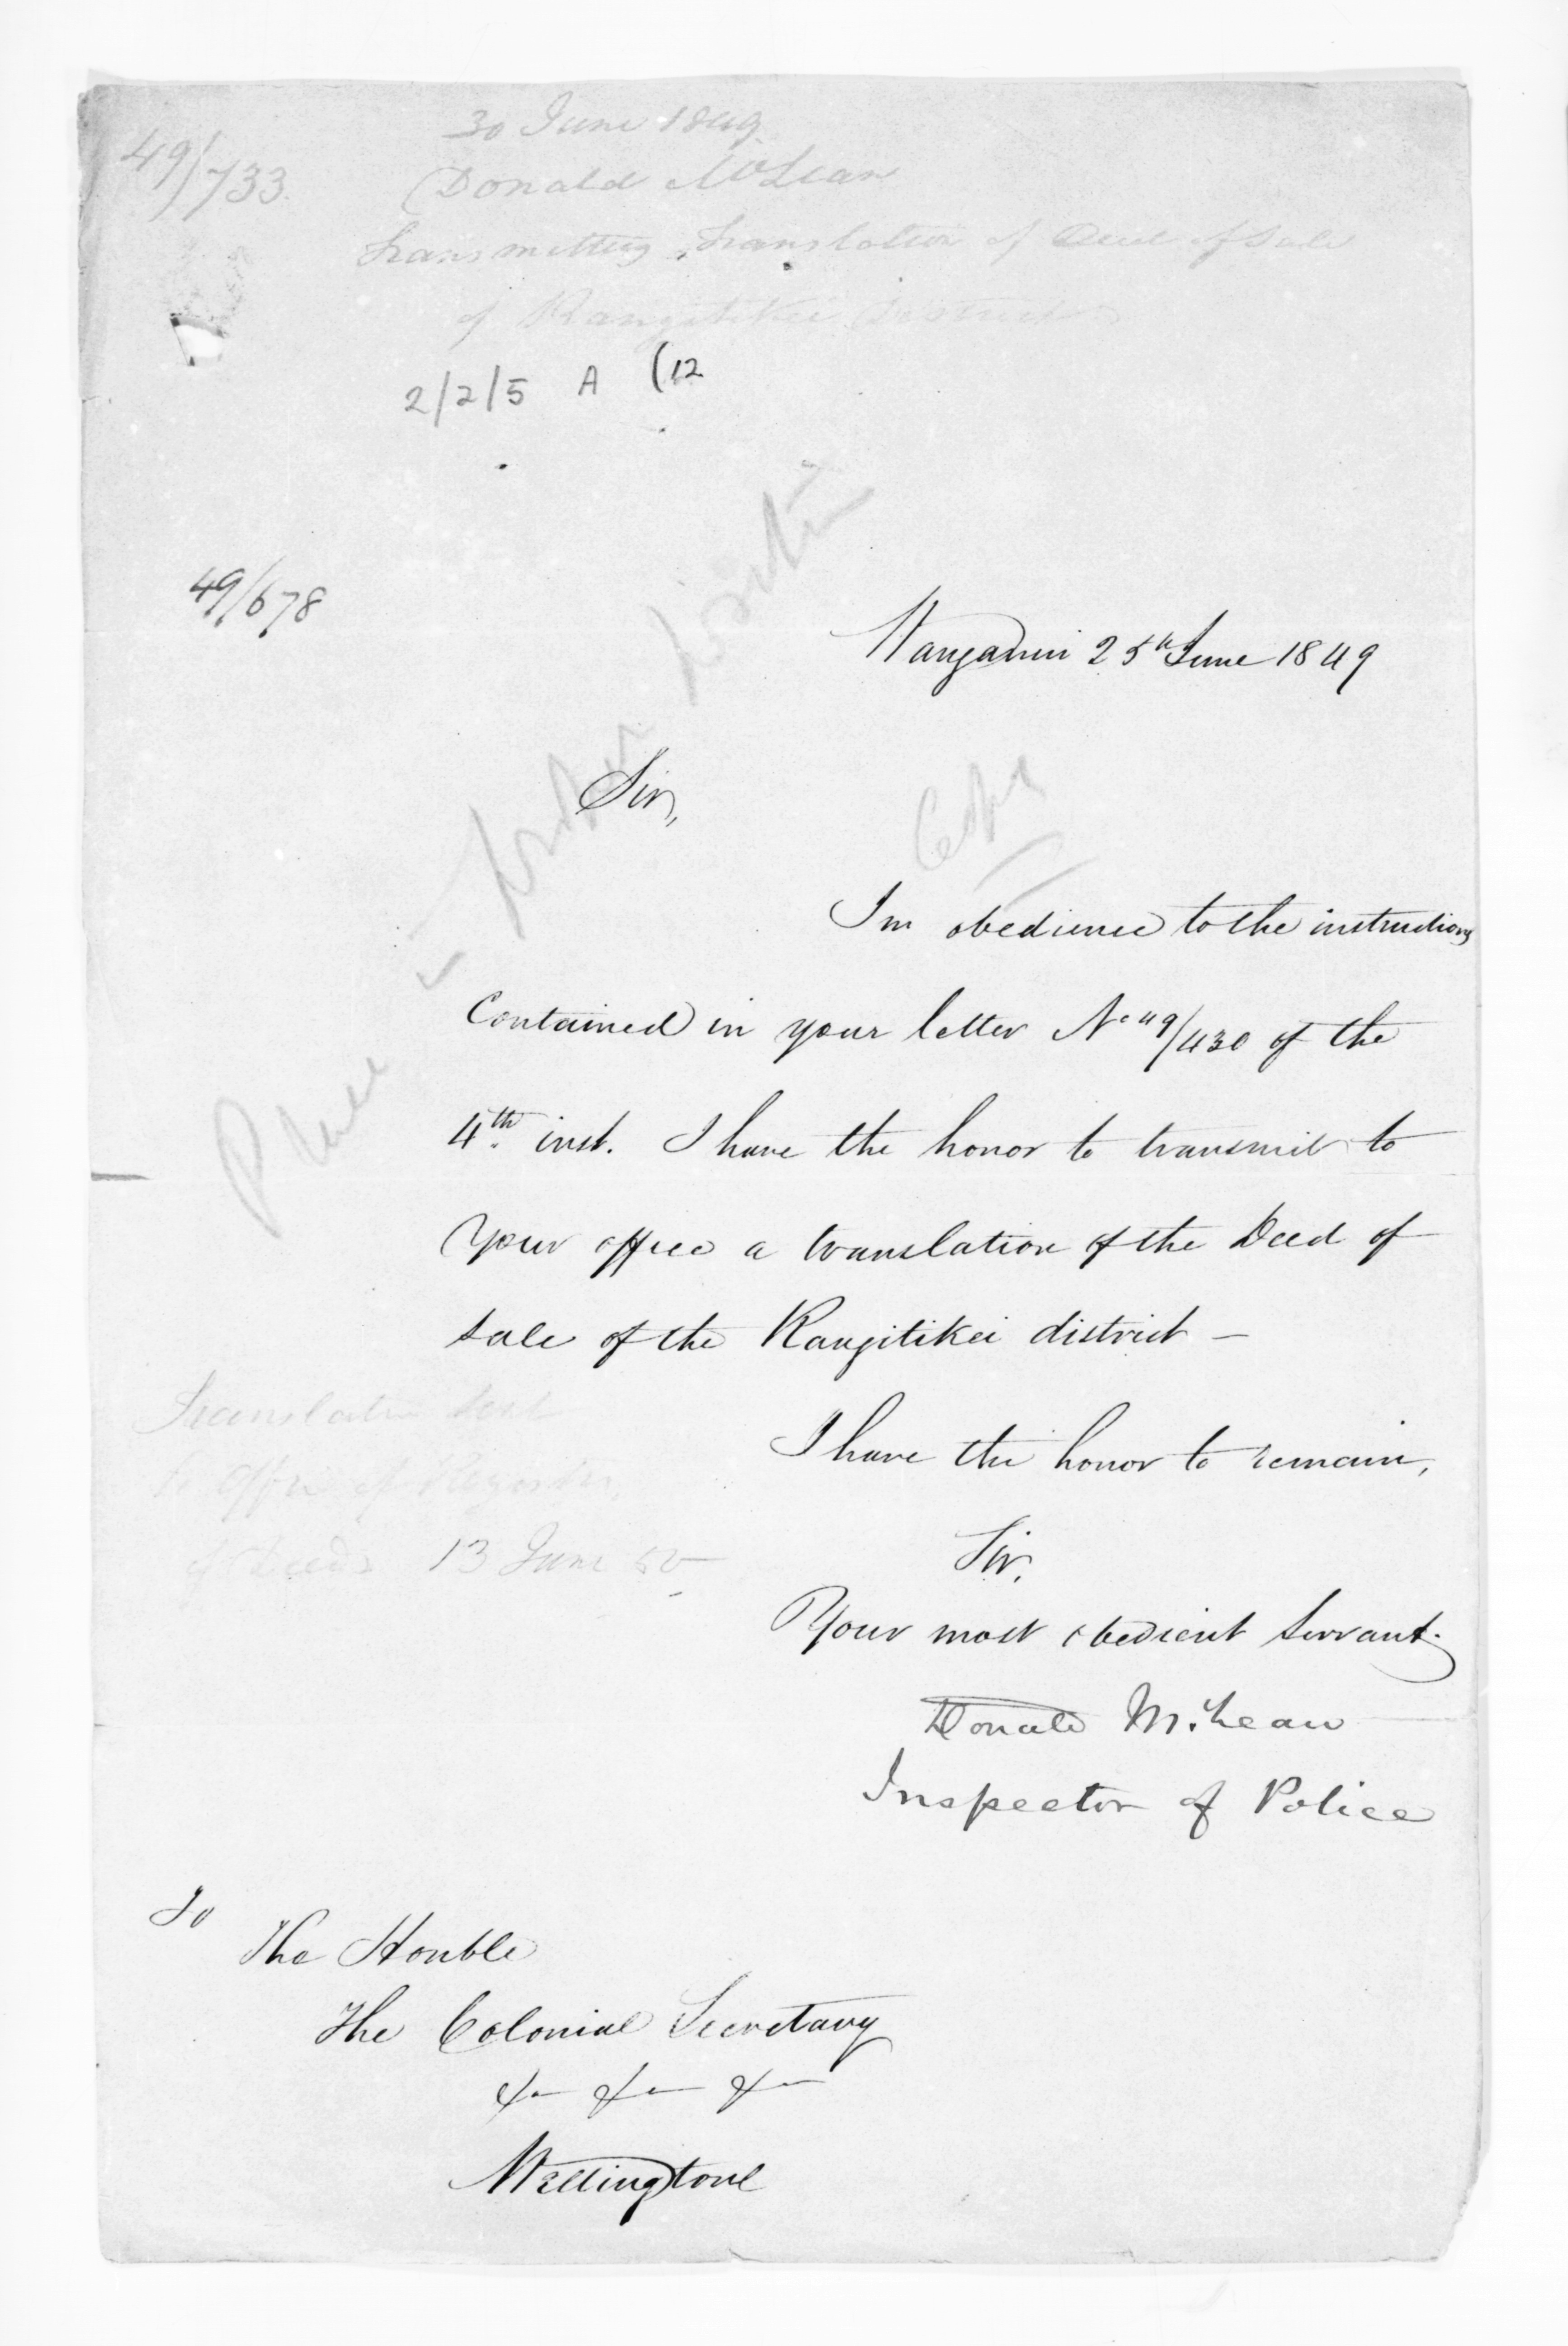 49/733
30 June 1849
Donald McLean
Transmitting Translation of Deed of Sale
of Rangitikei District
2/2/5 A (12
49/678
Wanganui 25th June 1849
Sir,
Copy
In obedience to the instructions
Contained in your letter No 49/430 of the
4th inst. I have the honor to transmit to
Your office a translation of the Deed of
sale of the Rangitikei district –
I have the honor to remain,
Sir,
Your most obedient Servant.
Donald McLean
Inspector of Police
Translation sent
to Office of Register
of Deeds 13 June 50
To
The Honble
The Colonial Secretary
&c &c &c
Wellington